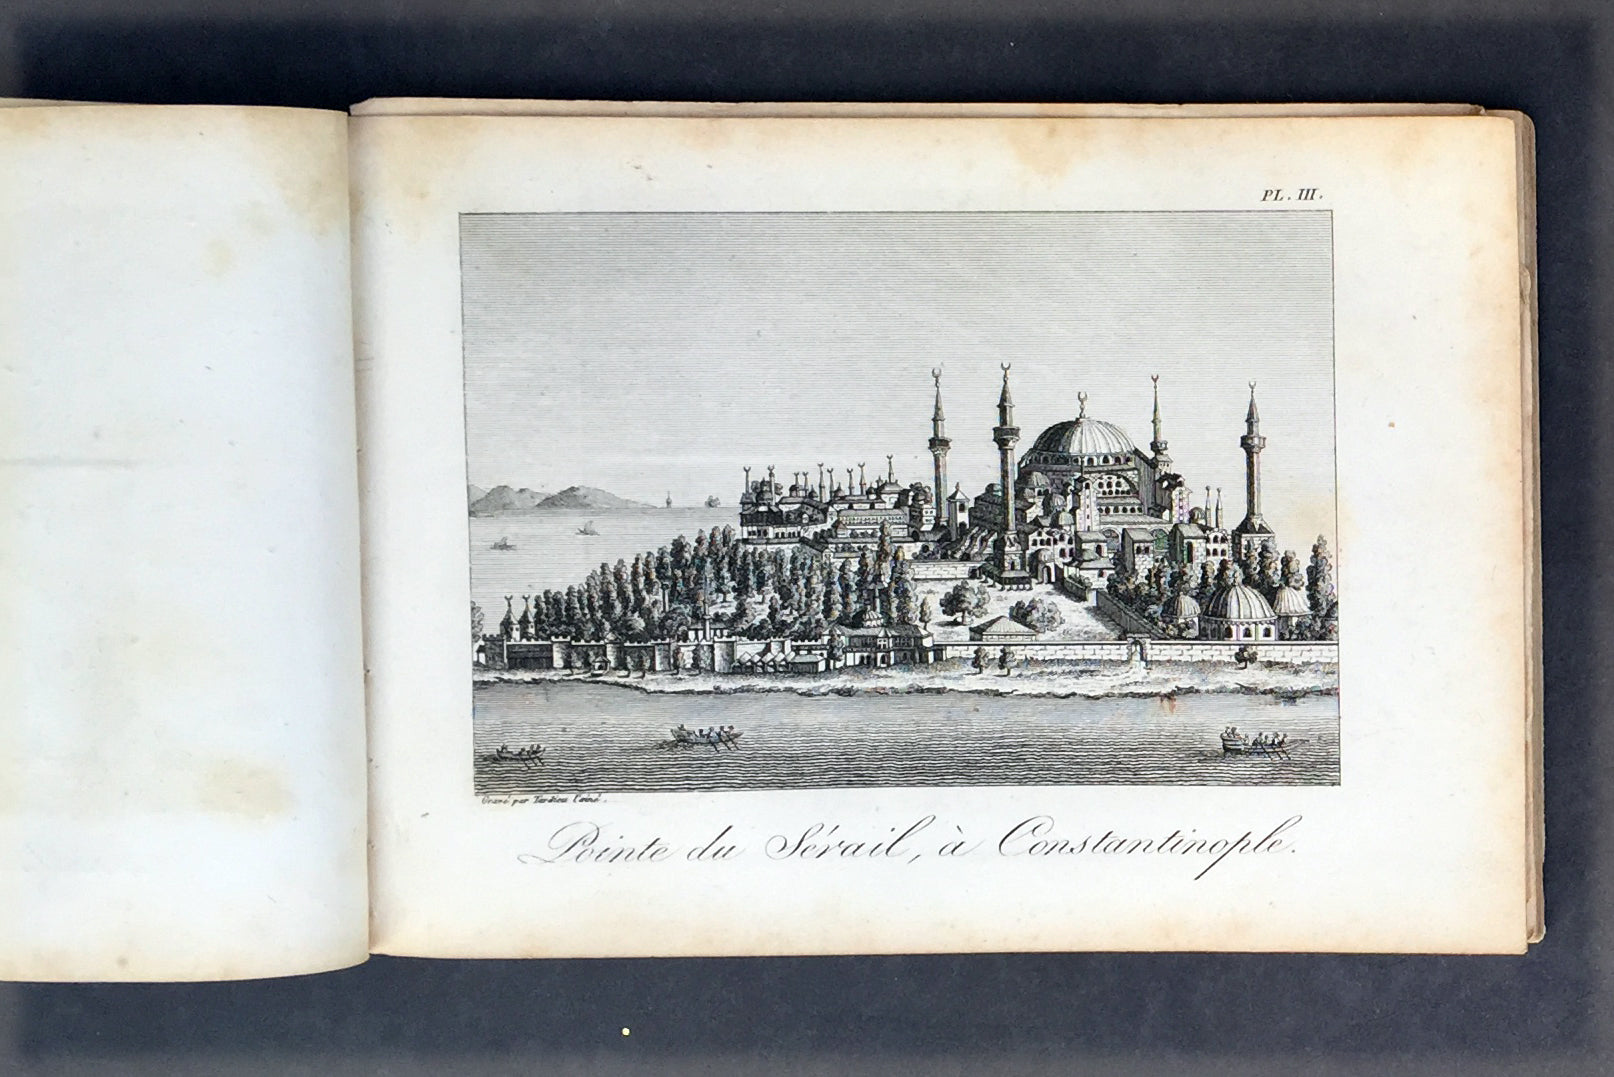 PL. III.
Gravé par Tardieu l'ainé.
Pointe du Sérail, à Constantinople.